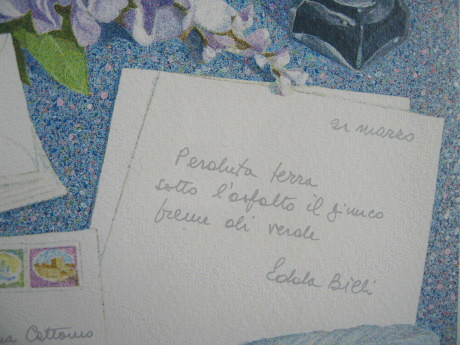 21 marzo
Perduta terra
sotto l'asfalto il giunco
freme di verde
Edda Billi
na Cettomo